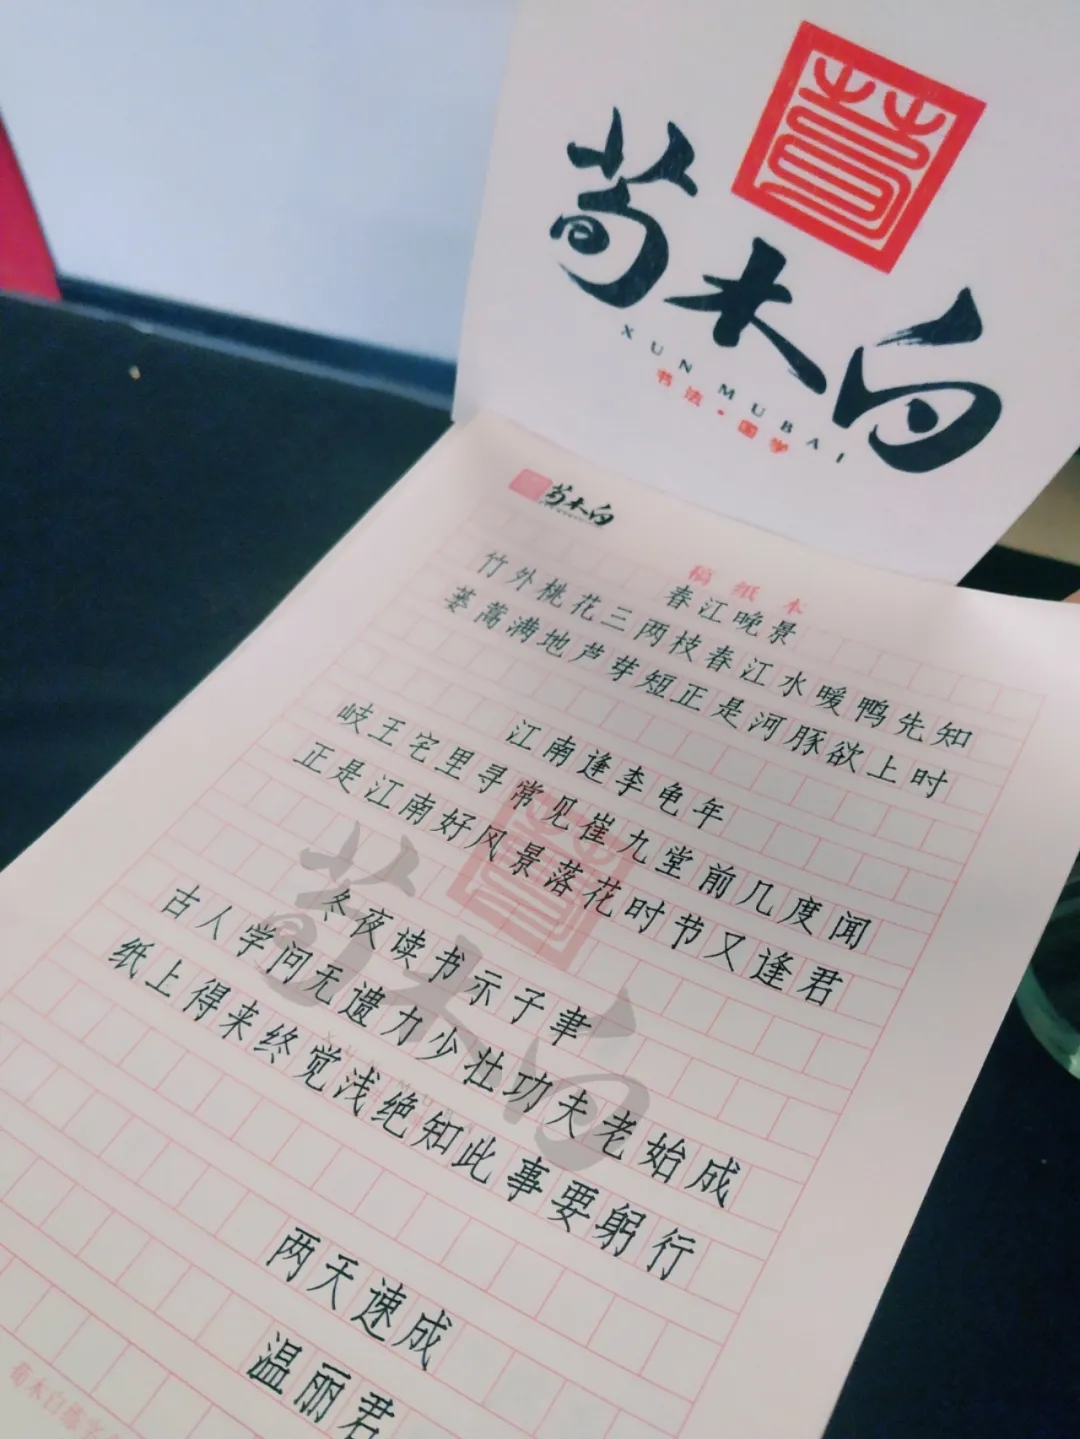 荀木白
XUN MUBAI
书法·国学
荀木白
稿纸本
春江晚景
竹外桃花三两枝春江水暖鸭先知
蒌蒿满地芦芽短正是河豚欲上时
江南逢李龟年
岐王宅里寻常见崔九堂前几度闻
正是江南好风景落花时节又逢君
冬夜读书示子聿
古人学问无遗力少壮功夫老始成
纸上得来终觉浅绝知此事要躬行
荀木白
两天速成
温丽君
荀木白练字